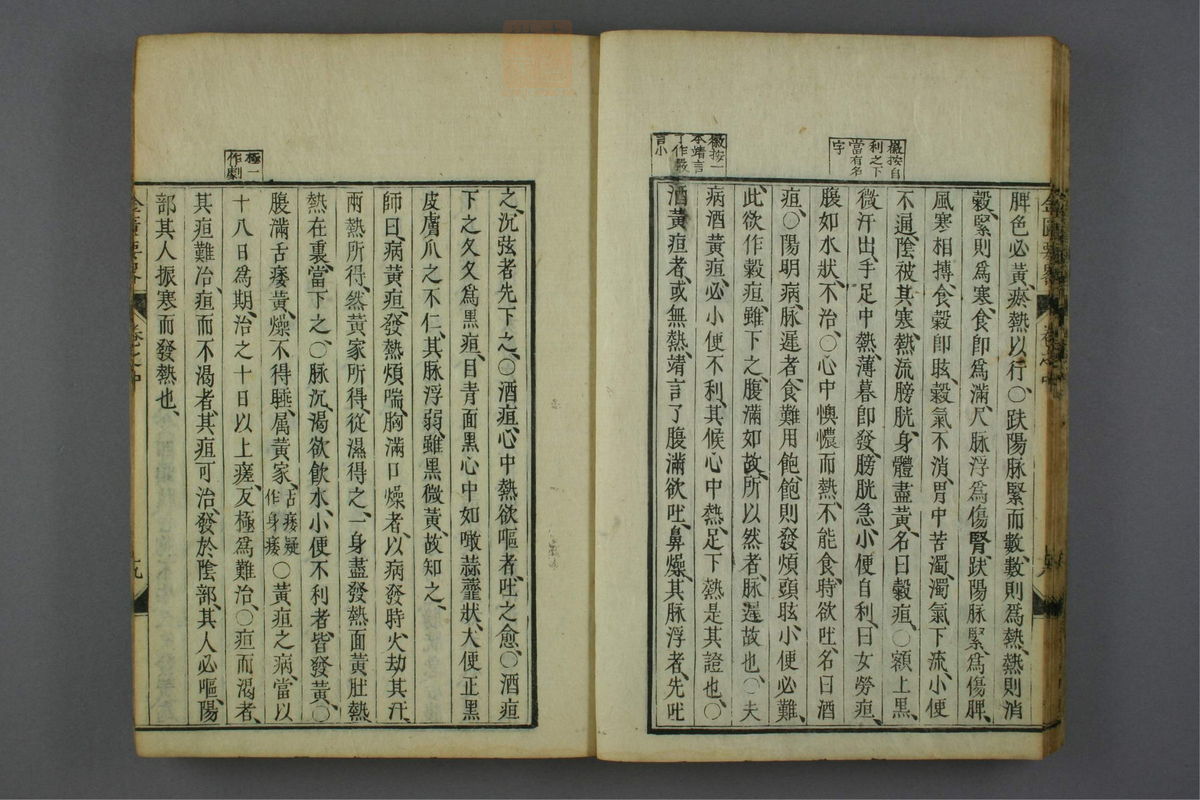 徽按自
利之下
當有名
字
徽按一
本靖言
了作
言小
脾色必黃、瘀熱以行、〇趺陽脉緊而數、數則爲熱、熱則消
穀、緊則爲寒、食卽爲滿、尺脉浮爲傷腎、趺陽脉緊、爲傷脾、
風寒相搏、食穀卽眩、穀氣不消、胃中苦濁、濁氣下流、小便
不通、陰被其寒、熱流膀胱、身體盡黃、名曰穀疸、〇額上黑、
微汗出、手足中熱、薄暮卽發、膀胱急、小便自利、曰女勞疸、
腹如水狀、不治、〇心中懊憹而熱、不能食、時欲吐、名曰酒
疸、〇陽明病、脉遲者、食難用飽、飽則發煩、頭眩、小便必難、
此欲作穀疸、雖下之、腹滿如故、所以然者、脉遲故也、〇夫
病酒黃疸、必小便不利、其候心中熱、足下熱、是其證也、〇
酒黃疸者、或無熱、靖言了、腹滿欲吐、鼻燥、其脉浮者、先吐
金匱要畧
卷之中
極一
作劇
之、沉弦者先下之、〇酒疸、心中熱欲嘔者、吐之愈、〇酒疸
下之、久久爲黑疸、目青面黑、心中如噉蒜虀狀、大便正黑
皮膚爪之不仁、其脉浮弱、雖黑微黃、故知之、
師曰、病黃疸、發熱煩喘、胸滿口燥者、以病發時、火劫其汗、
兩熱所得、然黃家所得、從濕得之、一身盡發熱面黃、肚熱、
熱在裏、當下之、〇脉沉、渴欲飲水、小便不利者、皆發黃、〇
腹滿舌痿黃、燥不得睡、属黃家、舌痿疑作身痿〇黃疸之病、當以
十八日爲期、治之十日以上瘥、反極爲難治、〇疸而渴者、
其疸難治、疸而不渴者、其疸可治、發於陰部、其人必嘔、陽
部其人振寒而發熱也、
卷之中
九